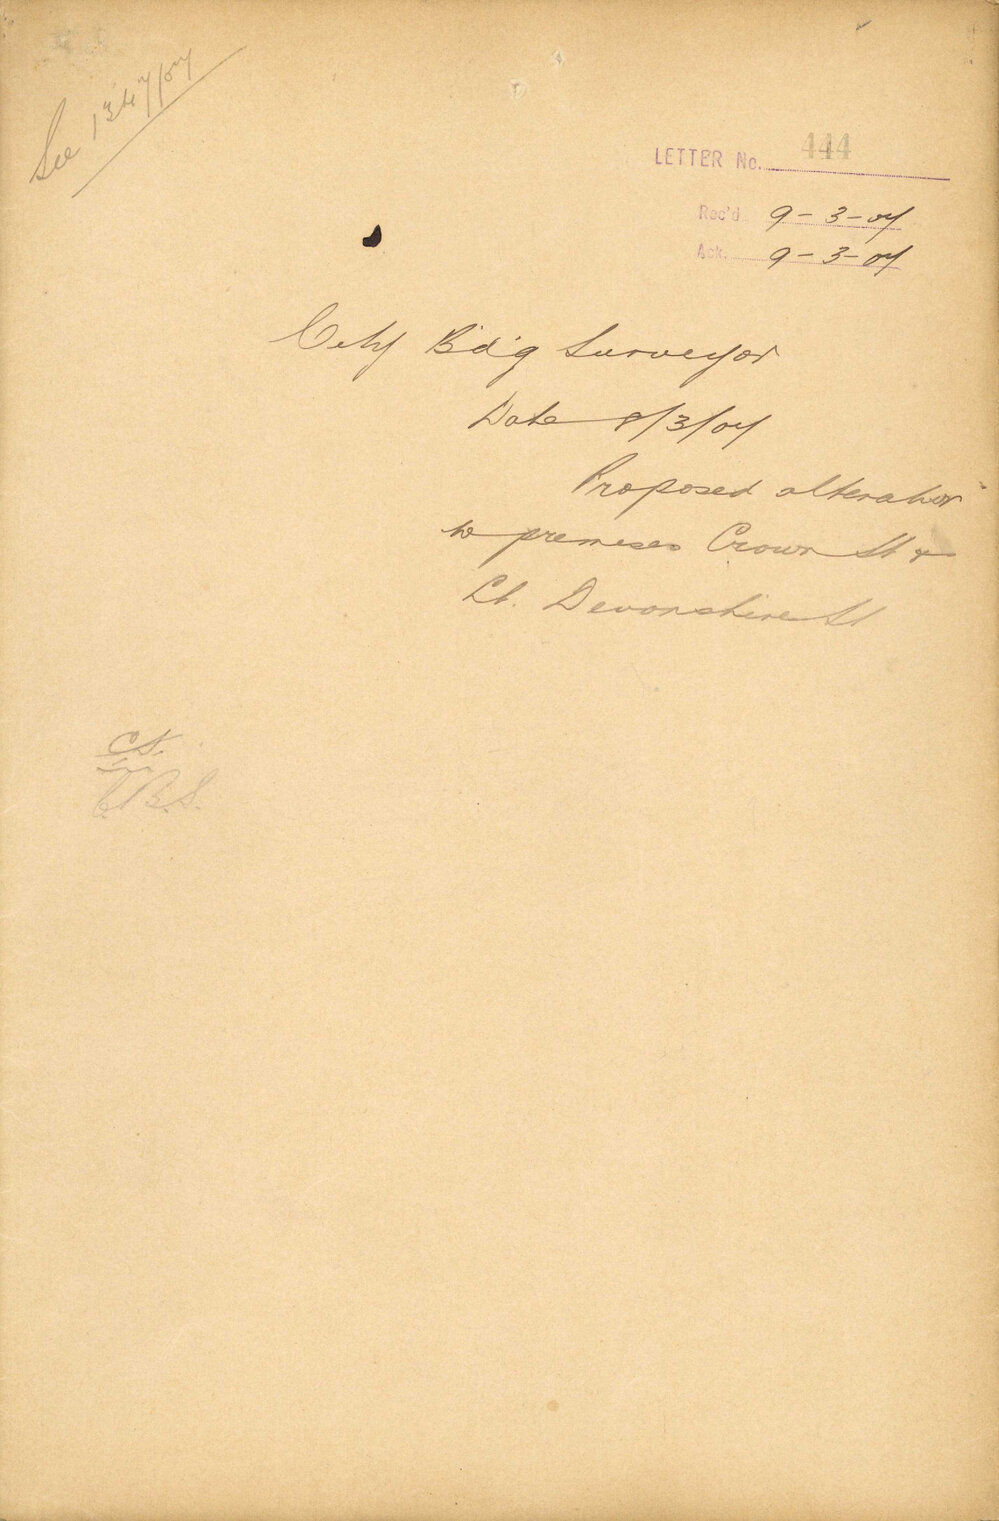 See 1347/07
LETTER No. 444
Rec'd 9-3-07
Ack. 9-3-07
City Bd'g Surveyor
Date 8/3/07
Proposed alteration
to premises Crown St &
Lt. Devonshire St
C.S.
C.B.S.